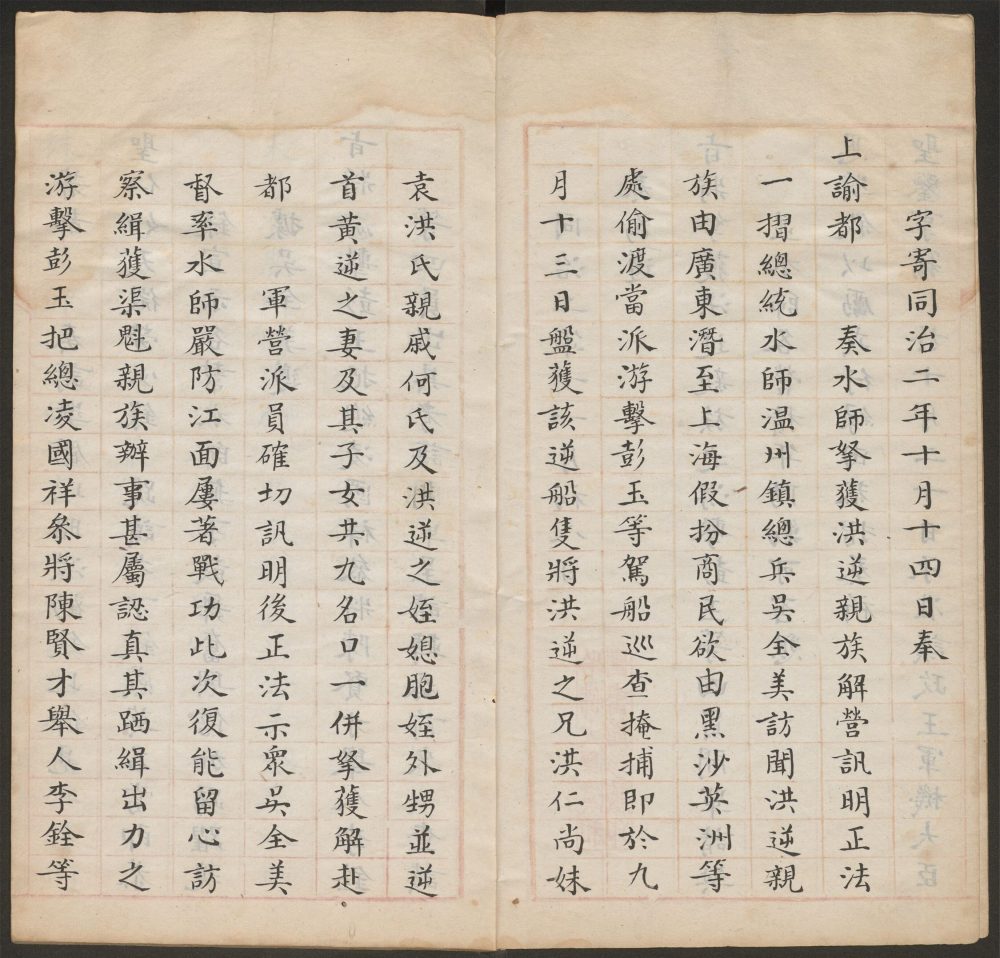 字寄同治二年十月十四日奉
上諭都 奏水師拏獲洪逆親族解營訊明正法
一摺總統水師温州鎮總兵吳全美訪聞洪逆親
族由廣東潛至上海假扮商民欲由黑沙英洲等
處偷渡當派游擊彭玉等駕船巡查掩捕即於九
月十三日盤獲該逆船隻將洪逆之兄洪仁尚妹
袁洪氏親戚何氏及洪逆之姪媳胞姪外甥並逆
首黃逆之妻及其子女共九名口一併拏獲解赴
都 軍營派員確切訊明後正法示眾吳全美
督率水師嚴防江面屢著戰功此次復能留心訪
察緝獲渠魁親族辦事甚屬認真其跴緝出力之
游擊彭玉把總凌國祥叅將陳賢才舉人李銓等